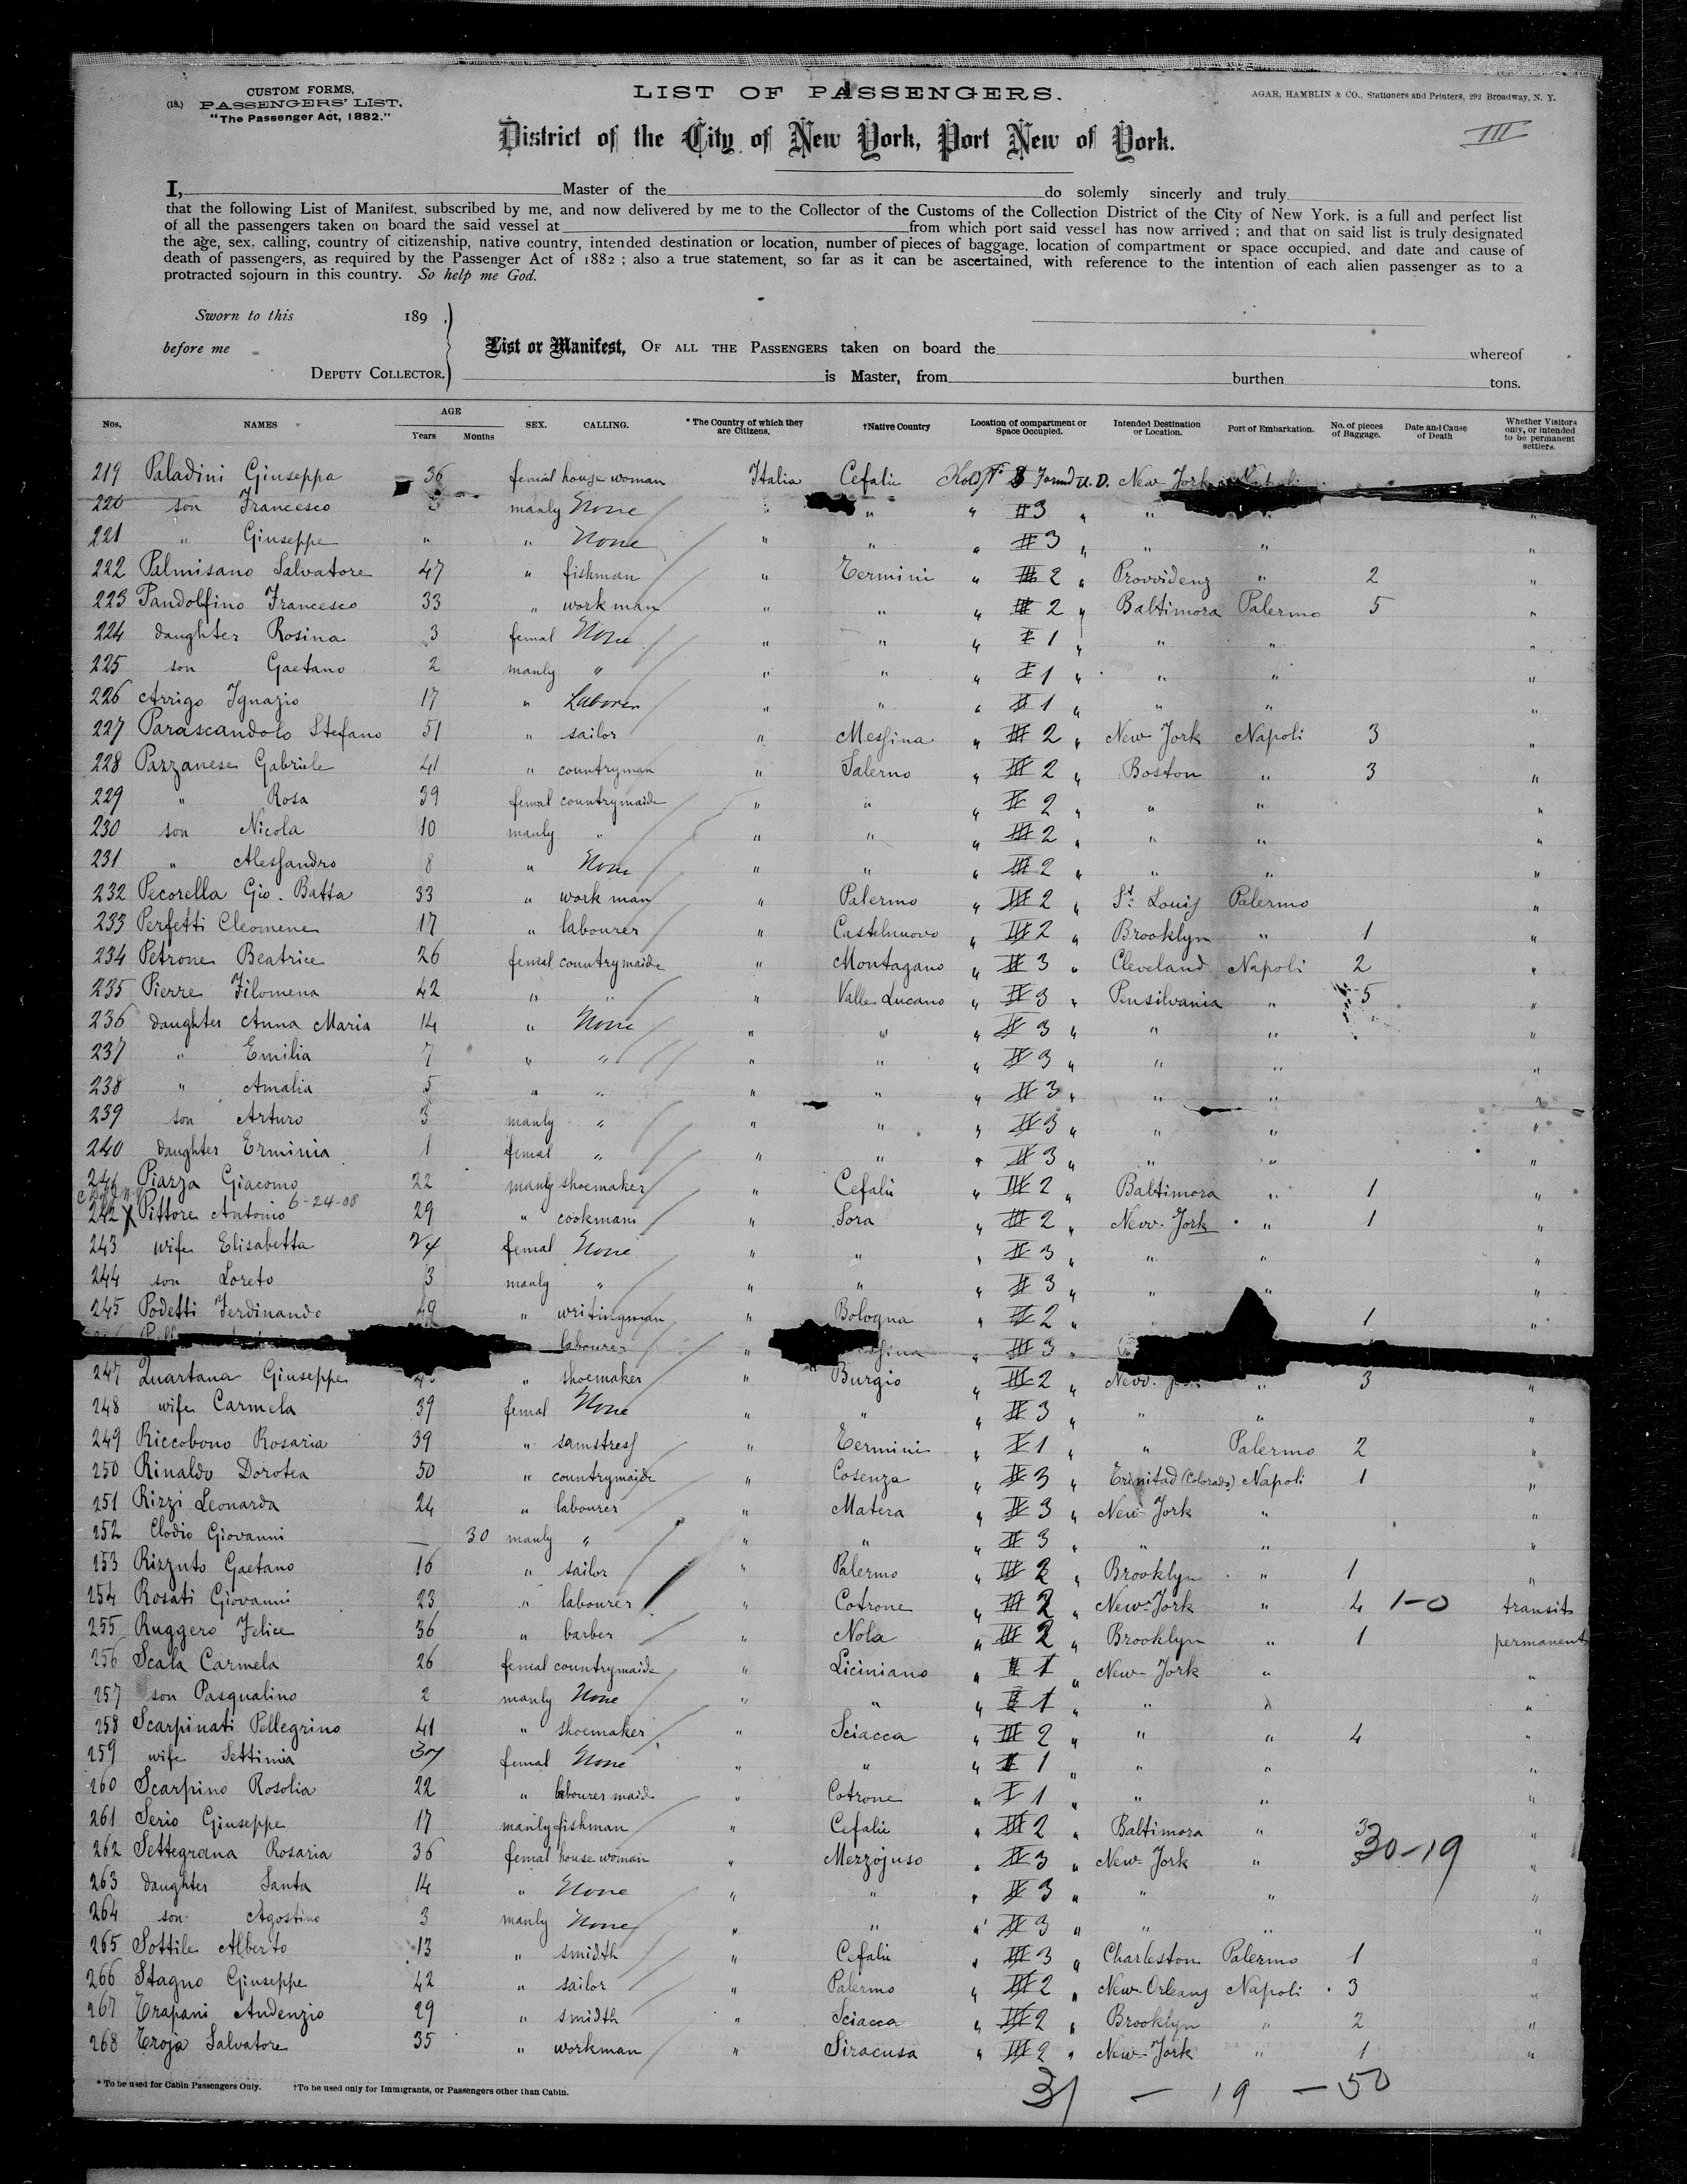 CUSTOM FORMS,
(18.) PASSENGERS' LIST.
"The Passenger Act, 1882."
LIST OF PASSENGERS.
AGAR, HAMBLIN & CO., Stationers and Printers, 292 Broadway, N. Y.
III
District of the City of New York, Port New of York.
I, Master of the do solemly sincerly and truly
that the following List of Manifest, subscribed by me, and now delivered by me to the Collector of the Customs of the Collection District of the City of New York, is a full and perfect list
of all the passengers taken on board the said vessel at from which port said vessel has now arrived ; and that on said list is truly designated
the age, sex, calling, country of citizenship, native country, intended destination or location, number of pieces of baggage, location of compartment or space occupied, and date and cause of
death of passengers, as required by the Passenger Act of 1882 ; also a true statement, so far as it can be ascertained, with reference to the intention of each alien passenger as to a
protracted sojourn in this country. So help me God.
Sworn to this 189 .
before me
DEPUTY COLLECTOR.
List or Manifest, OF ALL THE PASSENGERS taken on board the whereof
is Master, from burthen tons.
Nos, NAMES AGE Years Months SEX. CALLING. * The Country of which they are Citizens. †Native Country Location of compartment or Space Occupied. Intended Destination or Location. Port of Embarkation. No. of pieces of Baggage. Date and Cause of Death Whether Visitors only, or intended to be permanent settlers.
219 Paladini Giuseppa 36 femal house woman Italia Cefalù U.D. New-York
220 son Francesco manly None " " " 3 " "
221 " Giuseppe " " None " " " 3 " " " "
222 Palmisano Salvatore 47 " fishman " Termini " 2 " Provvidenz " 2 "
223 Pandolfino Francesco 33 " work man " " " 2 " Baltimora Palermo 5 "
224 daughter Rosina 3 femal None " " " 1 " " " "
225 son Gaetano 2 manly " " " " 1 " " " "
226 Arrigo Ignazio 17 " Laborer " " " 1 " " " "
227 Parascandolo Stefano 51 " sailor " Messina " 2 " New-York Napoli 3 "
228 Pazzanese Gabriele 41 " countryman " Salerno " 2 " Boston " 3 "
229 " Rosa 39 femal countrymaide " " " 2 " " " "
230 son Nicola 10 manly " " " " 2 " " " "
231 " Alessandro 8 " None " " " 2 " " " "
232 Pecorella Gio. Batta 33 " work man " Palermo " 2 " St. Louis Palermo "
233 Perfetti Cleomene 17 " labourer " Castelnuovo " 2 " Brooklyn " 1 "
234 Petrone Beatrice 26 femal countrymaide " Montagano " 3 " Cleveland Napoli 2 "
235 Pierre Filomena 42 " " " Valle Lucano " 3 " Pensilvania " 5 "
236 daughter Anna Maria 14 " None " " " 3 " " " "
237 " Emilia 7 " " " " " 3 " " " "
238 " Amalia 5 " " " " " 3 " " " "
239 son Arturo 3 manly " " " " 3 " " " "
240 daughter Erminia 1 femal " " " " 3 " " " "
241 Piazza Giacomo 22 manly shoemaker " Cefalù " 2 " Baltimora " 1 "
6-24-08
242 X Pittore Antonio 29 " cookman " Sora " 2 " New-York " 1 "
243 wife Elisabetta 24 femal None " " " 3 " " " "
244 son Loreto 3 manly " " " " 3 " " " "
245 Podetti Ferdinando " writingman " Bologna " 2 " 1 "
labourer " 3 "
247 Quartana Giuseppe " shoemaker " Burgio " 2 " " 3 "
248 wife Carmela 39 femal None " " " 3 " " " "
249 Riccobono Rosaria 39 " samstress " Termini " 1 " " Palermo 2 "
250 Rinaldo Dorotea 50 " countrymaide " Cosenza " 3 " Trinitad (Colorado) Napoli 1 "
251 Rizzi Leonarda 24 " labourer " Matera " 3 " New-York " "
252 Clodio Giovanni — 30 manly " " " " 3 " " " "
253 Rizzuto Gaetano 16 " sailor " Palermo " 2 " Brooklyn " 1 "
254 Rosati Giovanni 23 " labourer " Cotrone " 2 " New-York " 4 1-0 transit
255 Ruggero Felice 36 " barber " Nola " 2 " Brooklyn " 1 permanent
256 Scala Carmela 26 femal countrymaide " Liciniano " 1 " New-York " "
257 son Pasqualino 2 manly None " " " 1 " " " "
258 Scarpinati Pellegrino 41 " shoemaker " Sciacca " 2 " " " 4 "
259 wife Settimia 37 femal None " " " 1 " " " "
260 Scarpino Rosolia 22 " labourer maide " Cotrone " 1 " " " "
261 Serio Giuseppe 17 manly fishman " Cefalù " 2 " Baltimora " 3 "
262 Settegrana Rosaria 36 femal house woman " Mezzojuso " 3 " New-York " 30-19 "
263 daughter Santa 14 " None " " " 3 " " " "
264 son Agostino 3 manly None " " " 3 " " " "
265 Sottile Alberto 13 " smidth " Cefalù " 3 " Charleston Palermo 1 "
266 Stagno Giuseppe 42 " sailor " Palermo " 2 " New-Orleans Napoli 3 "
267 Trapani Audenzio 29 " smidth " Sciacca " 2 " Brooklyn " 2 "
268 Troja Salvatore 35 " workman " Siracusa " 2 " New-York " 1 "
* To be used for Cabin Passengers Only. †To be used only for Immigrants, or Passengers other than Cabin.
31 — 19 — 50